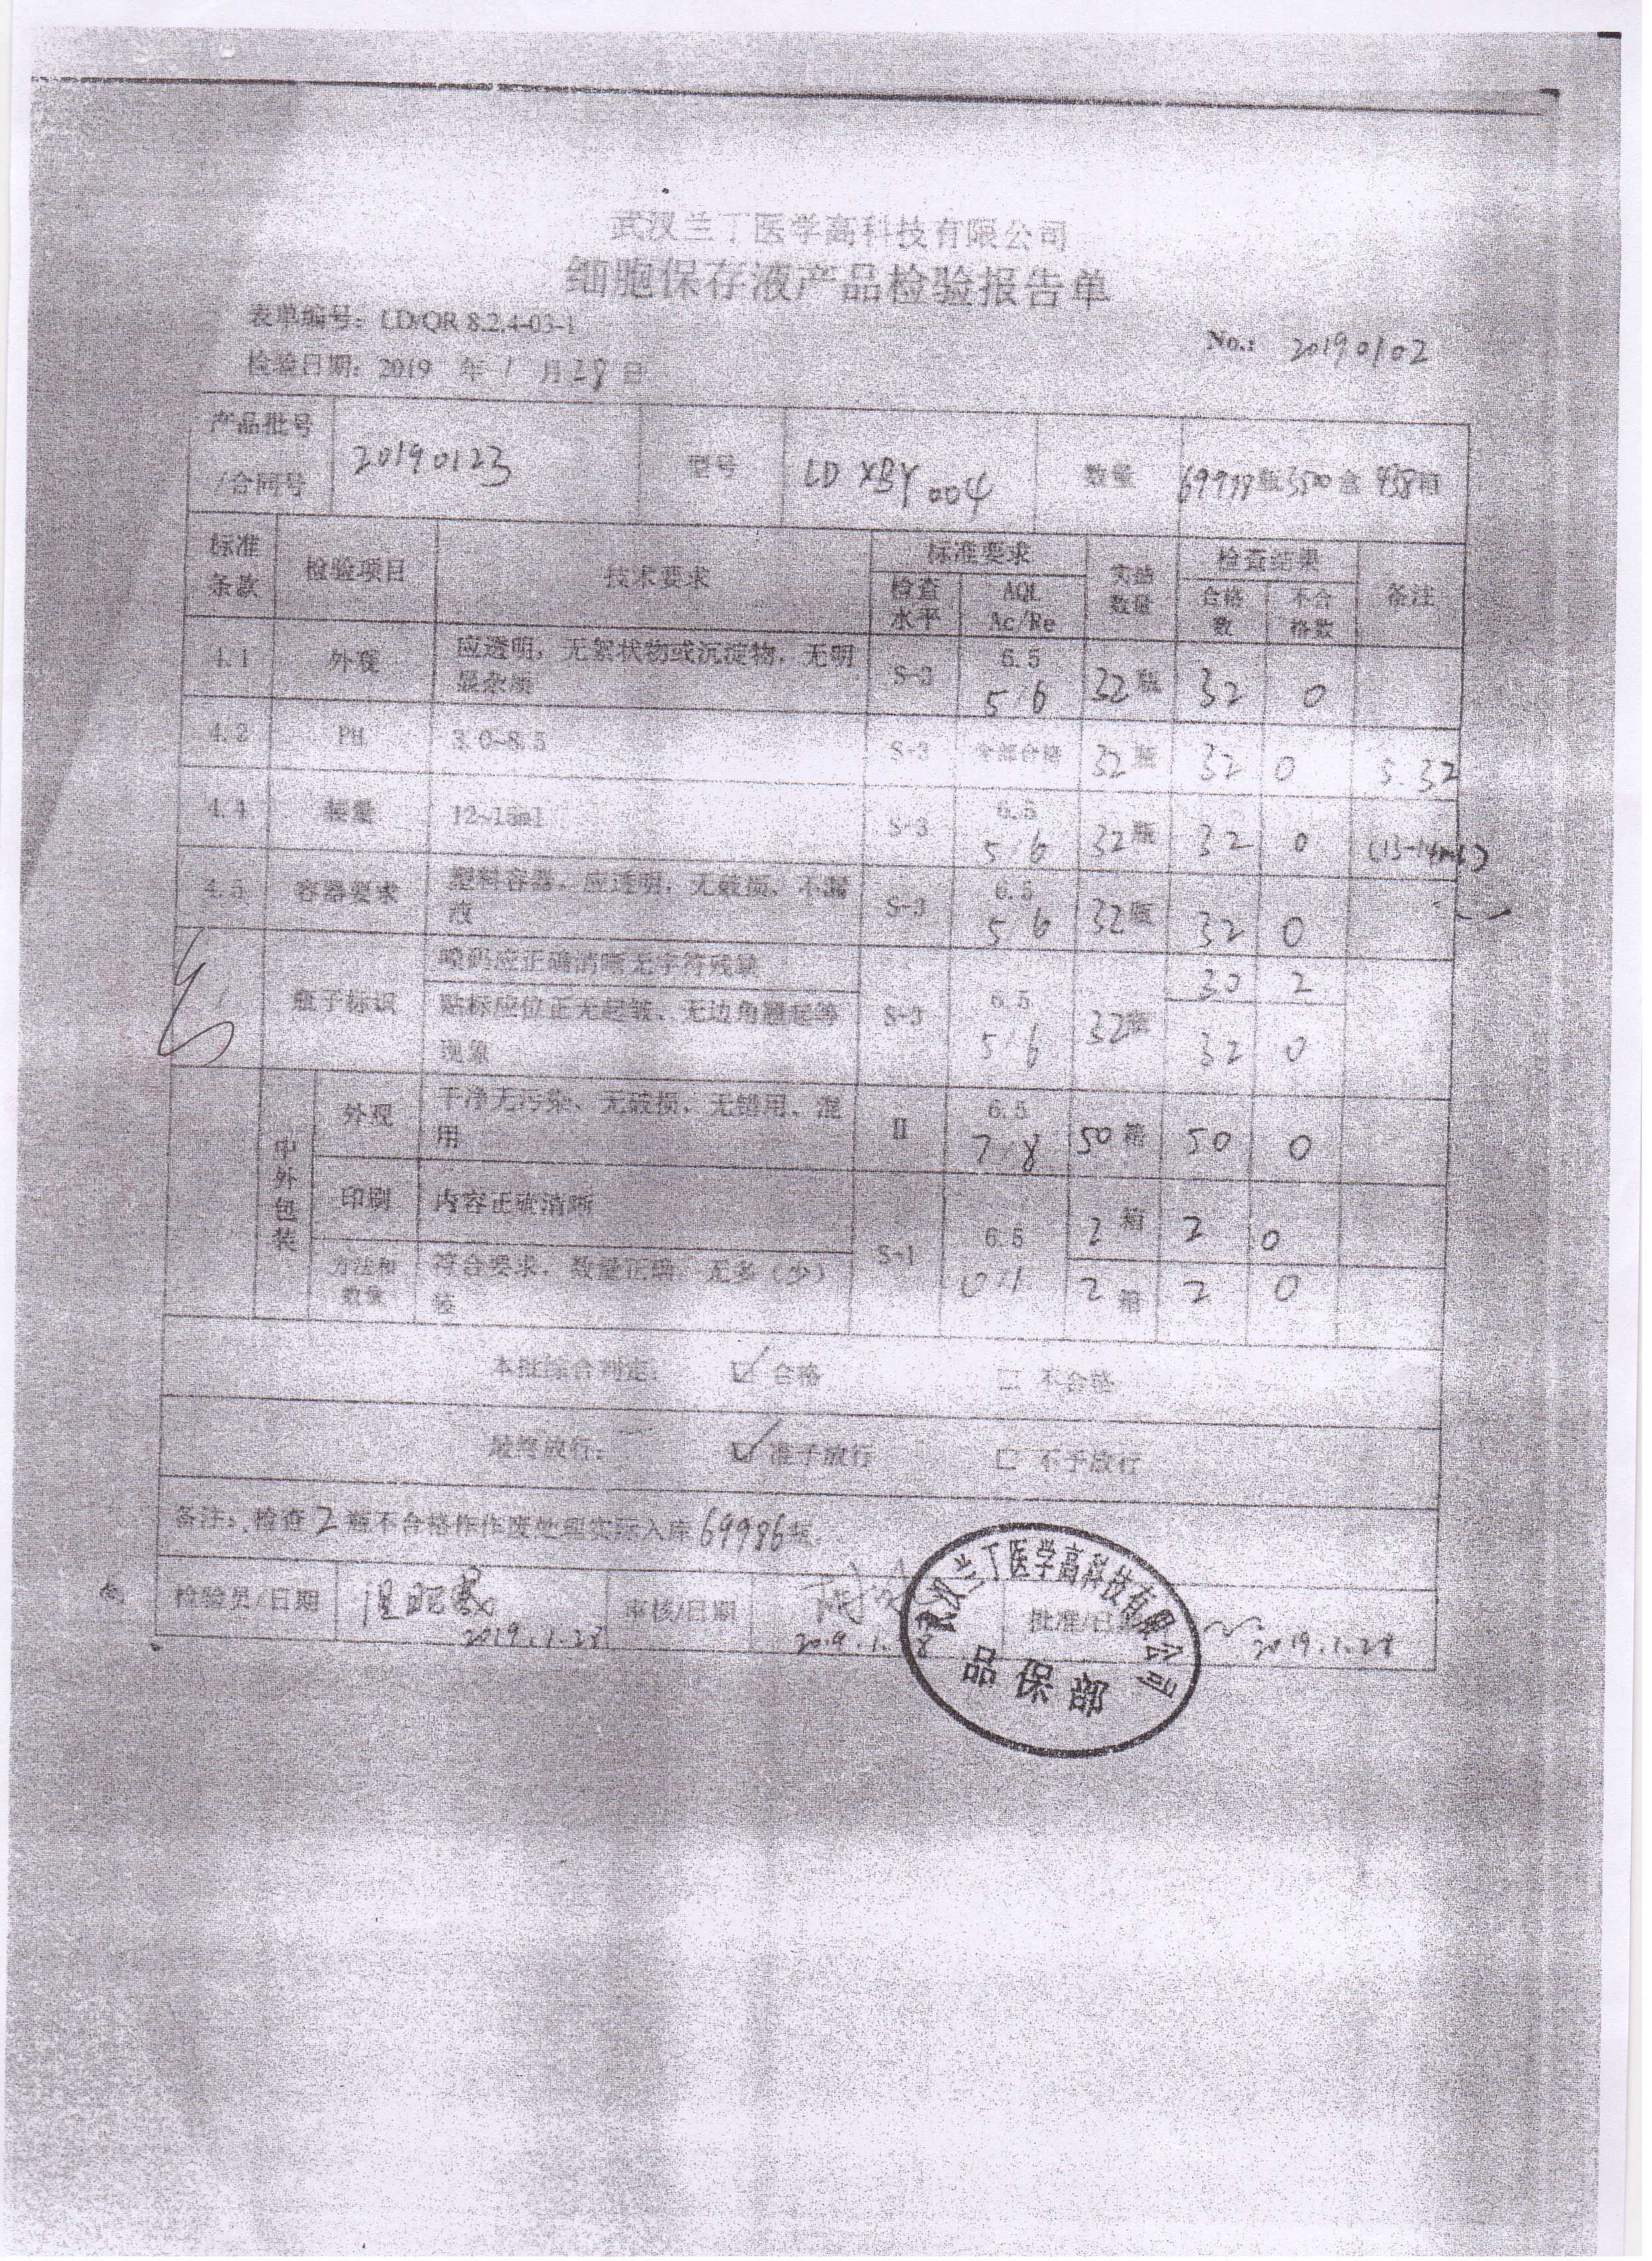 武汉兰丁医学高科技有限公司
细胞保存液产品检验报告单
表单编号：LD/QR 8.2.4-03-1
No.: 20190102
检验日期：2019 年 1 月 28 日
产品批号/合同号 20190123 型号 LD XBY 004 数量 瓶 3500 盒 箱
标准条款 检验项目 技术要求 标准要求 实验数量 检查结果 备注
检查水平 AQL Ac/Re 合格数 不合格数
4.1 外观 应透明，无絮状物或沉淀物，无明显杂质 S-3 6.5 5/6 32瓶 32 0
4.2 PH 3.0~8.5 S-3 全部合格 32瓶 32 0 5.32
4.4 装量 12~15ml S-3 6.5 5/6 32瓶 32 0 (13-14ml)
4.5 容器要求 塑料容器，应透明，无破损，不漏液 S-3 6.5 5/6 32瓶 32 0
瓶子标识 喷码应正确清晰无字符残缺 S-3 6.5 5/6 32瓶 30 2
贴标应位正无起皱、无边角翘起等现象 32 0
中外包装 外观 干净无污染、无破损，无错用、混用 II 6.5 7/8 50箱 50 0
印刷 内容正确清晰 S-1 6.5 0/1 2箱 2 0
方法和数量 符合要求，数量正确，无多（少）装 2箱 2 0
本批综合判定： ☑ 合格 □ 不合格
最终放行： ☑ 准予放行 □ 不予放行
备注：检查 2 瓶不合格作作废处理实际入库 69986 瓶.
检验员/日期 2019.1.28 审核/日期 2019.1.28 批准/日 2019.1.28
武汉兰丁医学高科技有限公司
品保部